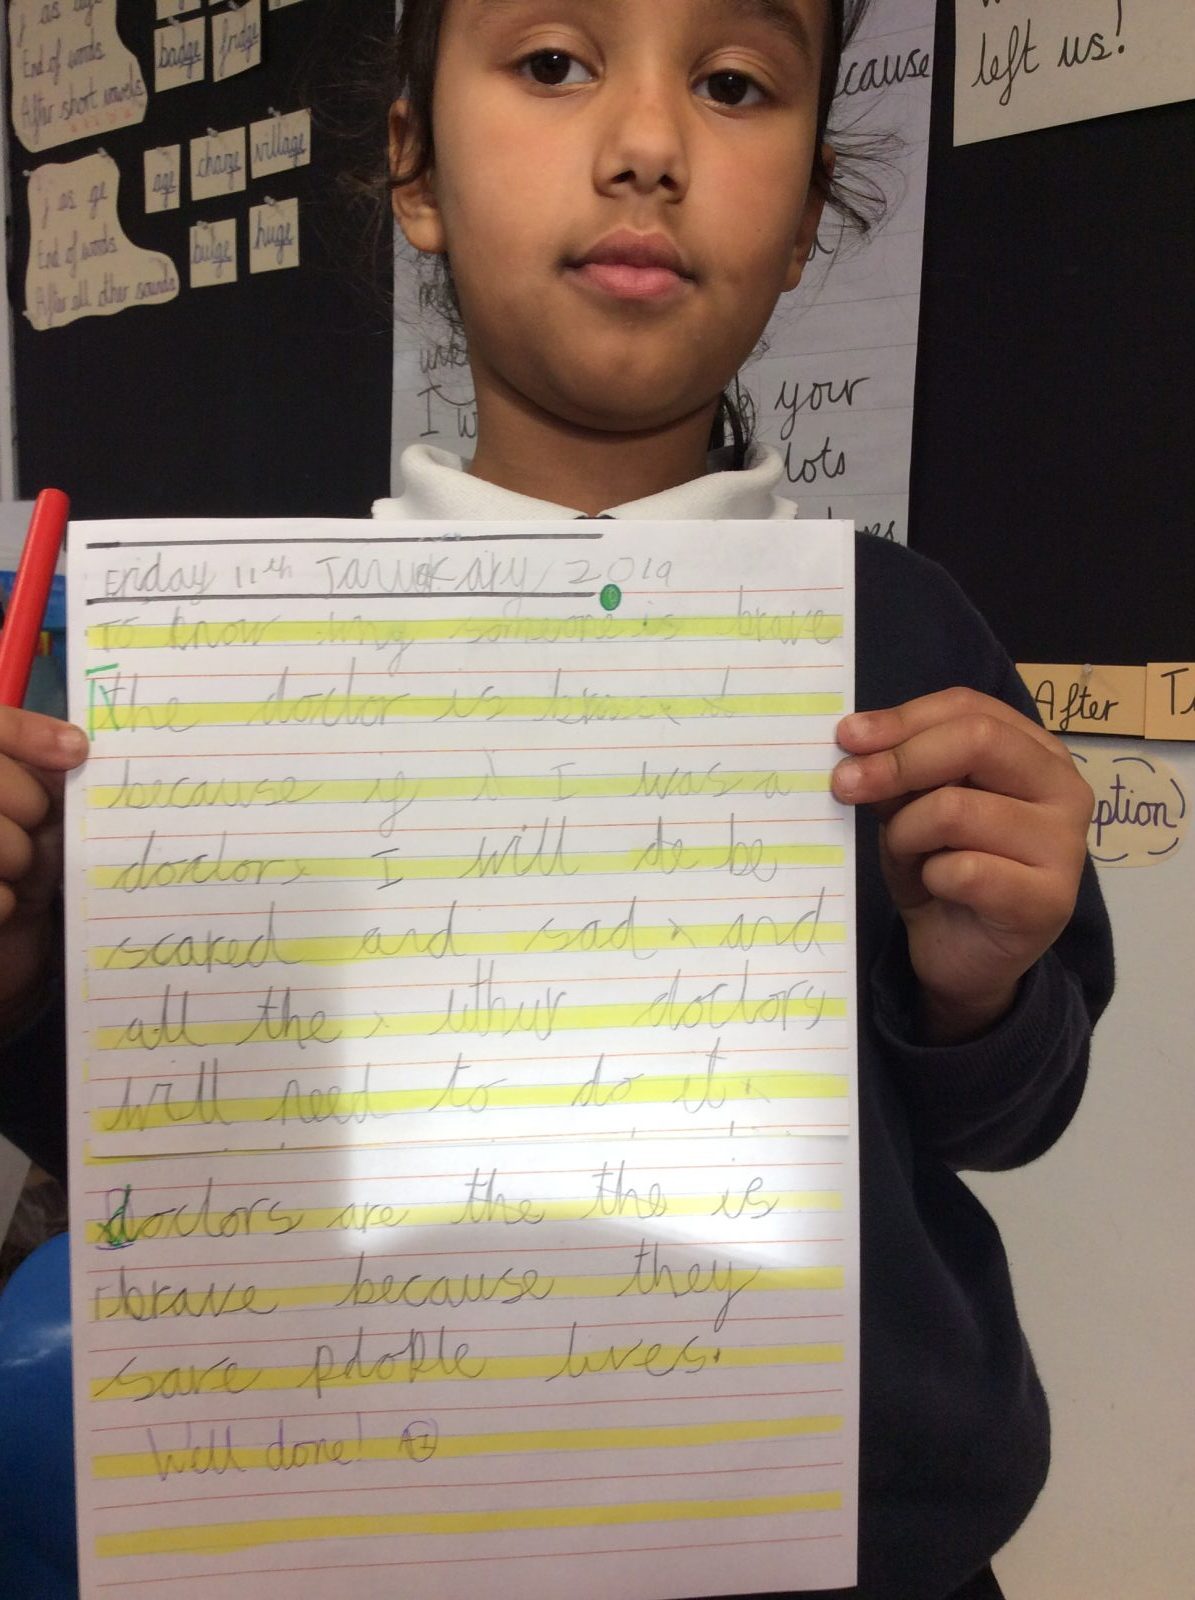 j as dge
End of words
After short vowels
badge
fridge
j as ge
End of words
After all other sounds
age
charge
village
bulge
huge
cause
left us!
I w
your
lots
After
ption
Friday 11th January 2019
To know why someone is brave
the doctor is
because if i I was a
doctor I will de be
scared and sad and
all the uthur doctors
will need to do it
doctors are the the is
brave because they
save pdople lives.
Well done!